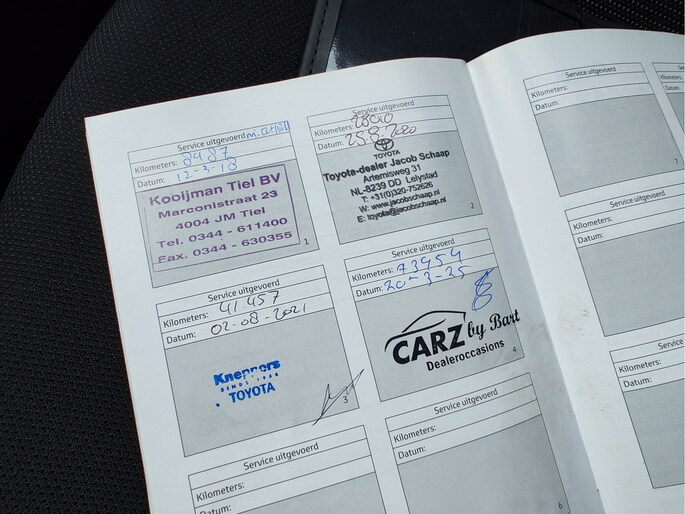 Service uitgevoerd
Kilometers: 8487
Datum: 12-3-18
Kooijman Tiel BV
Marconistraat 23
4004 JM Tiel
Tel. 0344 - 611400
Fax. 0344 - 630355
1
Service uitgevoerd
Kilometers:
Datum: 25-8-2020
TOYOTA
Toyota-dealer Jacob Schaap
Artemisweg 31
NL-8239 DD Lelystad
T: +31(0)320-752626
W: www.jacobschaap.nl
E: toyota@jacobschaap.nl
2
Service uitgevoerd
Kilometers: 41.457
Datum: 02-08-2021
Kneppers
SINDS 1966
TOYOTA
3
Service uitgevoerd
Kilometers: 43954
Datum: 20-3-25
CARZ by Bart
Dealeroccasions
4
Service uitgevoerd
Kilometers:
Datum:
Service uitgevoerd
Kilometers:
Datum:
6
Service uitgevoerd
Kilometers:
Datum:
7
Service uitgevoerd
Kilometers:
Datum:
Service uitgevoerd
Kilometers:
Datum: